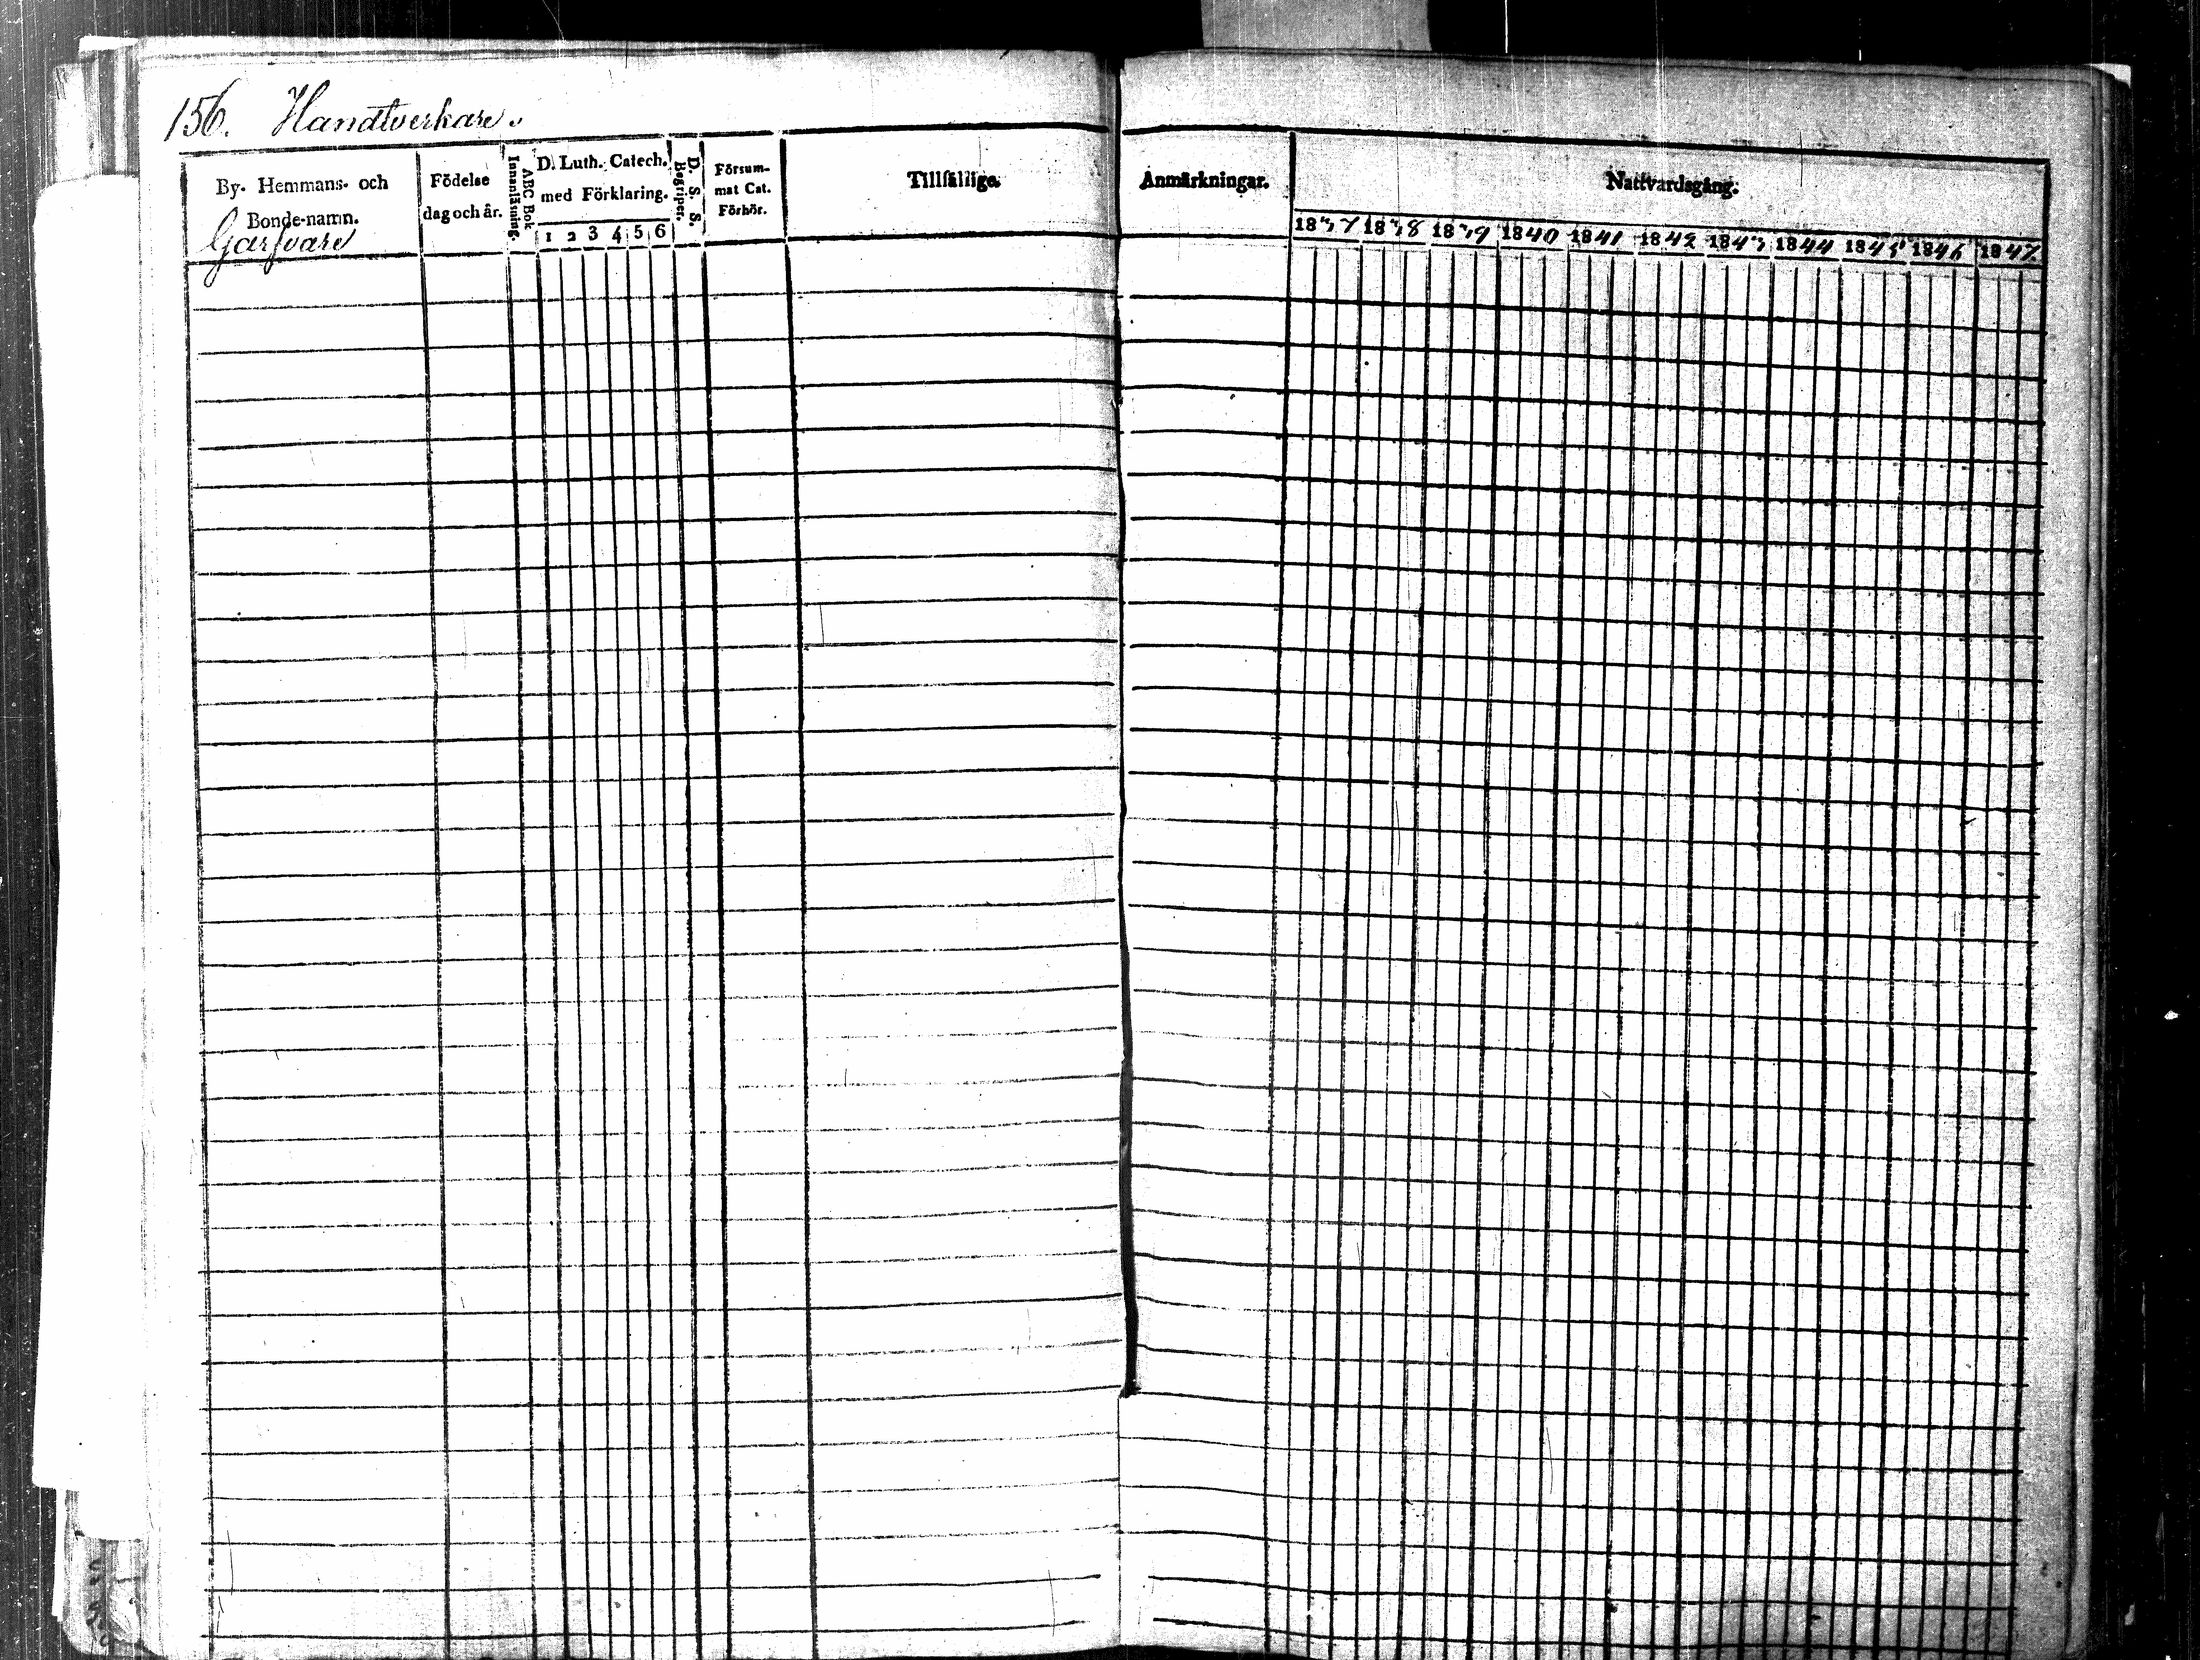 156. Handtverkare.
By- Hemmans- och
Bonde-namn.
Garfvare
Födelse
dag och år.
ABC Bok
Innanläsning.
D. Luth. Catech.
med Förklaring.
1 2 3 4 5 6
D. S. S.
Begriper.
Försum-
mat Cat.
Förhör.
Tillfällige.
Anmärkningar.
Nattvardsgång.
1837 1838 1839 1840 1841 1842 1843 1844 1845 1846 1847